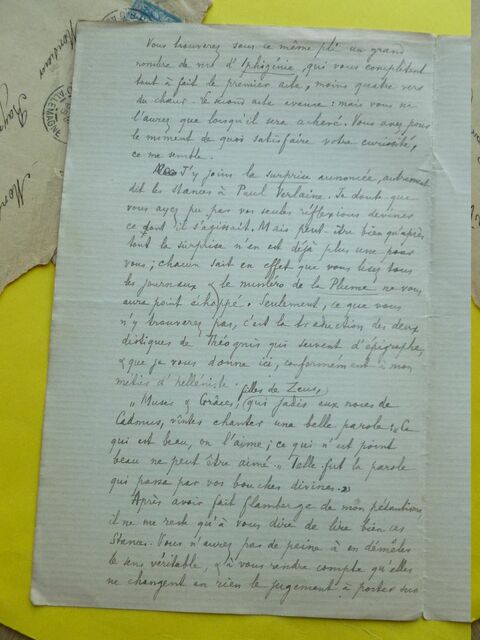 Vous trouverez sous ce même pli un grand
nombre de vers d'Iphigénie, qui vous complètent
tout à fait le premier acte, moins quatre vers
du chœur. Le second acte avance : mais vous ne
l'aurez que lorsqu'il sera achevé. Vous avez pour
le moment de quoi satisfaire votre curiosité,
ce me semble.
J'y joins la surprise annoncée, autrement
dit les Stances à Paul Verlaine. Je doute que
vous ayez pu par vos seules réflexions deviner
ce dont il s'agissait. Mais peut-être bien qu'après
tout la surprise n'en est déjà plus une pour
vous ; chacun sait en effet que vous lisez tous
les journaux & le numéro de la Plume ne vous
aura point échappé. Seulement, ce que vous
n'y trouverez pas, c'est la traduction des deux
distiques de Théognis qui servent d'épigraphe,
& que je vous donne ici, conformément à mon
métier d'helléniste :
filles de Zeus,
„Muses & Grâces, qui jadis aux noces de
Cadmus, vîntes chanter une belle parole : „Ce
qui est beau, on l'aime ; ce qui n'est point
beau ne peut être aimé." Telle fut la parole
qui passa par vos bouches divines."
Après avoir fait flamberge de mon pédantisme
il ne me reste qu'à vous dire de lire bien ces
Stances. Vous n'aurez pas de peine à en démêler
le sens véritable, & à vous rendre compte qu'elles
ne changent en rien le jugement à porter sur
Monsieur
ALLEMAGNE